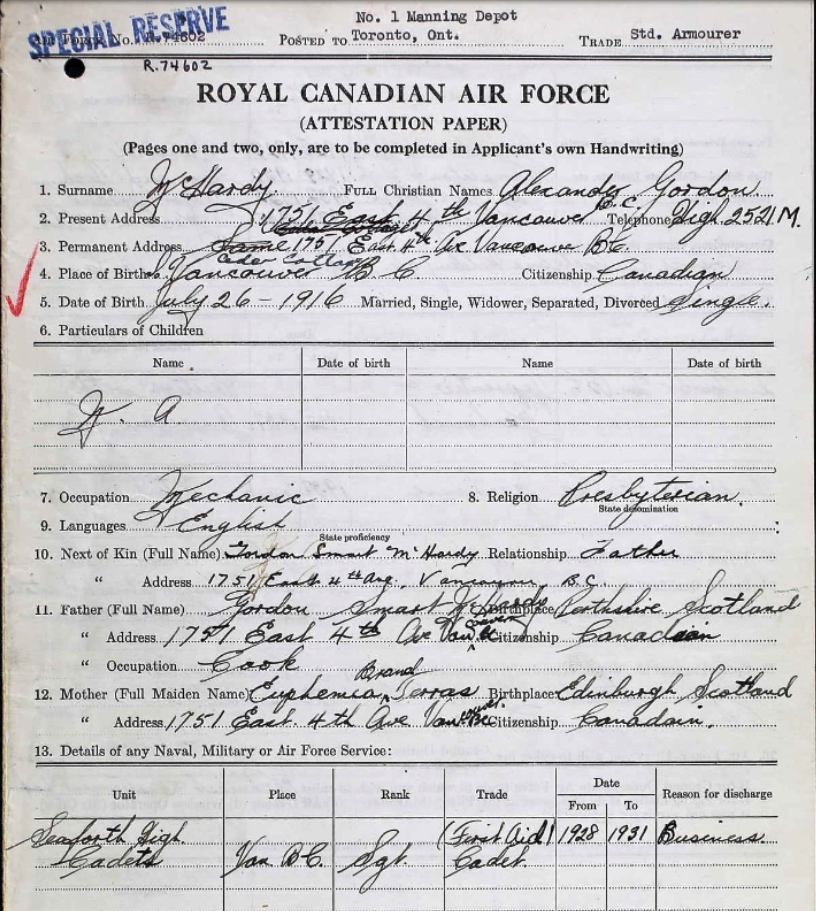 SPECIAL RESERVE
No. 1 Manning Depot
Air Force No. R.74602 Posted to Toronto, Ont. Trade Std. Armourer
R.74602
ROYAL CANADIAN AIR FORCE
(ATTESTATION PAPER)
(Pages one and two, only, are to be completed in Applicant's own Handwriting)
1. Surname McHardy. Full Christian Names Alexander Gordon.
2. Present Address 1751 East 4th Vancouver B.C. Telephone High 2521 M.
3. Permanent Address Same 1751 East 4th Ave Vancouver B.C.
Cedar Cottage
4. Place of Birth Vancouver B C Citizenship Canadian
5. Date of Birth July 26 - 1916 Married, Single, Widower, Separated, Divorced Single.
6. Particulars of Children
Name Date of birth Name Date of birth
N. A.
7. Occupation Mechanic 8. Religion Presbyterian.
State denomination
9. Languages English
State proficiency
10. Next of Kin (Full Name) Gordon Smart McHardy Relationship Father
" Address 1751 East 4th Ave., Vancouver, B.C.
11. Father (Full Name) Gordon Smart McHardy Birthplace Perthshire Scotland
" Address 1751 East 4th Ave Vancouver BC Citizenship Canadian
" Occupation Cook
12. Mother (Full Maiden Name) Euphemia Brand Terras Birthplace Edinburgh Scotland
" Address 1751 East. 4th Ave Vancouver BC Citizenship Canadain.
13. Details of any Naval, Military or Air Force Service:
Unit Place Rank Trade Date From To Reason for discharge
Seaforth High. Cadets Van B.C. Sgt (First Aid) Cadet. 1928 1931 Business.